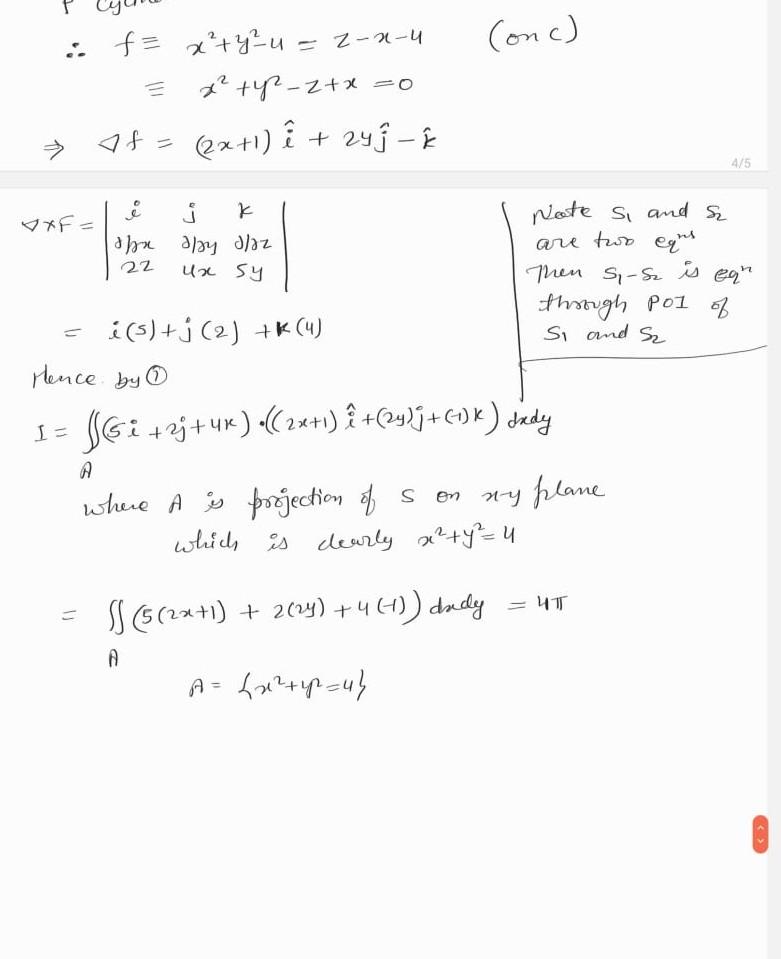 ∴ f ≡ x²+y²-4 = z-x-4 (on c)
≡ x²+y²-z+x =0
⇒ ∇f = (2x+1) î + 2yĵ - k̂
4/5
∇×F = | i j k |
| ∂/∂x ∂/∂y ∂/∂z |
| 2z 4x 5y |
= i(5)+j(2) +k(4)
Hence by ①
Note S₁ and S₂
are two eqⁿˢ
Then S₁-S₂ is eqⁿ
through POI of
S₁ and S₂
I = ∬(5i +2j+4k)·((2x+1) î+(2y)j+(-1)k) dxdy
A
where A is projection of S on x-y plane
which is clearly x²+y²=4
= ∬(5(2x+1) + 2(2y) +4(-1)) dxdy = 4π
A
A = {x²+y²=4}